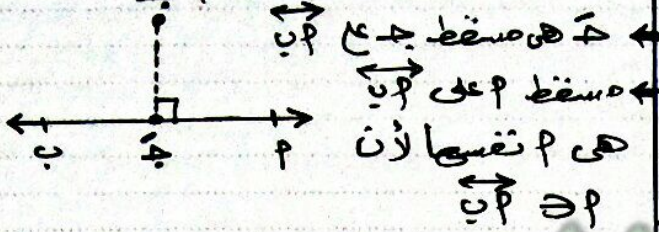 ← جَـ هى مسقط جـ ع أب
← مسقط أ على أب
هى أ نفسها لأن
أ ∈ أب
ب جَـ أ